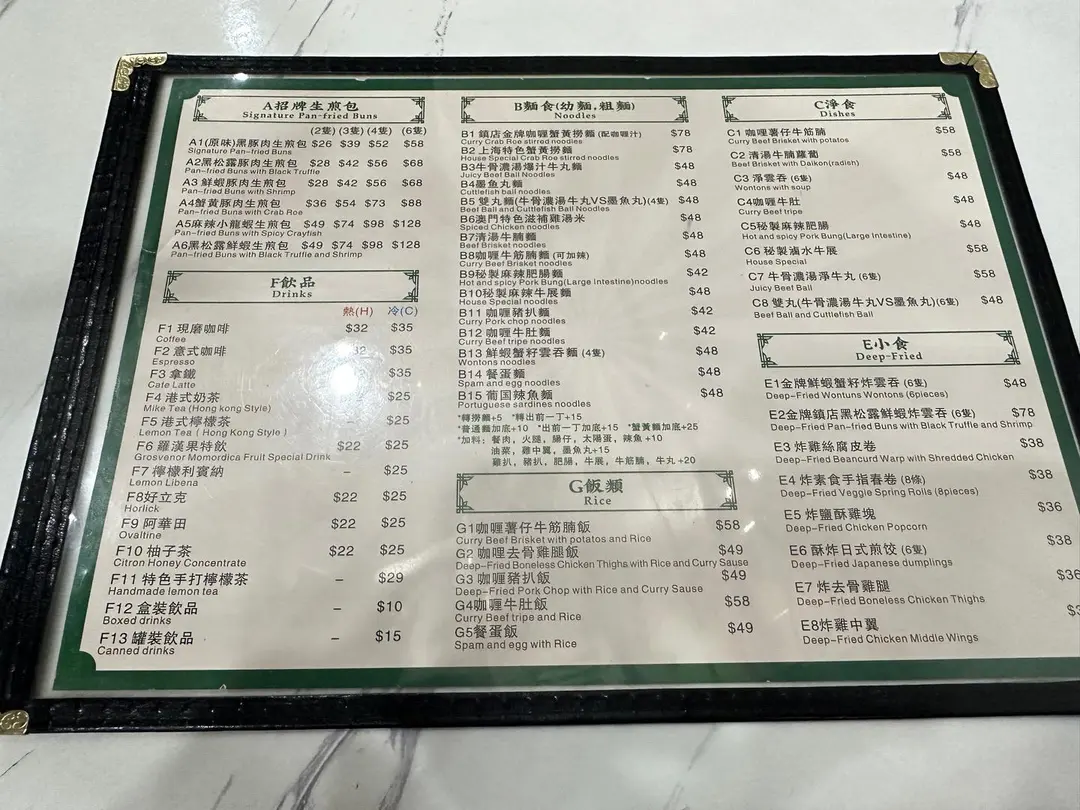 A招牌生煎包
Signature Pan-fried Buns
(2隻) (3隻) (4隻) (6隻)
A1(原味)黑豚肉生煎包 $26 $39 $52 $58
Signature Pan-fried Buns
A2黑松露豚肉生煎包 $28 $42 $56 $68
Pan-fried Buns with Black Truffle
A3 鮮蝦豚肉生煎包 $28 $42 $56 $68
Pan-fried Buns with Shrimp
A4蟹黃豚肉生煎包 $36 $54 $73 $88
Pan-fried Buns with Crab Roe
A5麻辣小龍蝦生煎包 $49 $74 $98 $128
Pan-fried Buns with Spicy Crayfish
A6黑松露鮮蝦生煎包 $49 $74 $98 $128
Pan-fried Buns with Black Truffle and Shrimp
F飲品
Drinks
熱(H) 冷(C)
F1 現磨咖啡 $32 $35
Coffee
F2 意式咖啡 $35
Espresso
F3 拿鐵 $35
Cafe Latte
F4 港式奶茶 $25
Mike Tea (Hong kong Style)
F5 港式檸檬茶 $25
Lemon Tea ( Hong Kong Style )
F6 羅漢果特飲 $22 $25
Grosvenor Momordica Fruit Special Drink
F7 檸檬利賓納 – $25
Lemon Libena
F8好立克 $22 $25
Horlick
F9 阿華田 $22 $25
Ovaltine
F10 柚子茶 $22 $25
Citron Honey Concentrate
F11 特色手打檸檬茶 – $29
Handmade lemon tea
F12 盒裝飲品 – $10
Boxed drinks
F13 罐裝飲品 – $15
Canned drinks
B麵食(幼麵,粗麵)
Noodles
B1 鎮店金牌咖喱蟹黃撈麵 (配咖喱汁) $78
Curry Crab Roe stirred noodles
B2 上海特色蟹黃撈麵 $78
House Special Crab Roe stirred noodles
B3牛骨濃湯爆汁牛丸麵 $48
Juicy Beef Ball Noodles
B4墨魚丸麵 $48
Cuttlefish ball noodles
B5 雙丸麵(牛骨濃湯牛丸VS墨魚丸)(4隻) $48
Beef Ball and Cuttlefish Ball Noodles
B6澳門特色滋補雞湯米 $48
Spiced Chicken noodles
B7清湯牛腩麵 $48
Beef Brisket noodles
B8咖喱牛筋腩麵 (可加辣) $48
Curry Beef Brisket noodles
B9秘製麻辣肥腸麵 $42
Hot and spicy Pork Bung(Large Intestine)noodles
B10秘製麻辣牛展麵 $48
House Special noodles
B11 咖喱豬扒麵 $42
Curry Pork chop noodles
B12 咖喱牛肚麵 $42
Curry Beef tripe noodles
B13 鮮蝦蟹籽雲吞麵 (4隻) $48
Wontons noodles
B14 餐蛋麵 $48
Spam and egg noodles
B15 葡国辣魚麵 $48
Portuguese sardines noodles
*轉撈麵+5 *轉出前一丁+15
*普通麵加底+10 *出前一丁加底+15 *蟹黃麵加底+25
*加料: 餐肉, 火腿, 腸仔, 太陽蛋, 辣魚 +10
油菜, 雞中翼, 墨魚丸+15
雞扒, 豬扒, 肥腸, 牛展, 牛筋腩, 牛丸 +20
G飯類
Rice
G1咖喱薯仔牛筋腩飯 $58
Curry Beef Brisket with potatos and Rice
G2 咖喱去骨雞腿飯 $49
Deep-Fried Boneless Chicken Thighs with Rice and Curry Sause
G3 咖喱豬扒飯 $49
Deep-Fried Pork Chop with Rice and Curry Sause
G4咖喱牛肚飯 $58
Curry Beef tripe and Rice
G5餐蛋飯 $49
Spam and egg with Rice
C淨食
Dishes
C1 咖喱薯仔牛筋腩 $58
Curry Beef Brisket with potatos
C2 清湯牛腩蘿蔔 $58
Beef Brisket with Daikon(radish)
C3 淨雲吞 (6隻) $48
Wontons with soup
C4咖喱牛肚 $48
Curry Beef tripe
C5秘製麻辣肥腸 $48
Hot and spicy Pork Bung(Large Intestine)
C6 秘製滷水牛展 $58
House Special
C7 牛骨濃湯淨牛丸 (6隻) $58
Juicy Beef Ball
C8 雙丸(牛骨濃湯牛丸VS墨魚丸)(6隻) $48
Beef Ball and Cuttlefish Ball
E小食
Deep-Fried
E1金牌鮮蝦蟹籽炸雲吞 (6隻) $48
Deep-Fried Wontons Wontons (6pieces)
E2金牌鎮店黑松露鮮蝦炸雲吞 (6隻) $78
Deep-Fried Pan-fried Buns with Black Truffle and Shrimp
E3 炸雞絲腐皮卷 $38
Deep-Fried Beancurd Warp with Shredded Chicken
E4 炸素食手指春卷 (8條) $38
Deep-Fried Veggie Spring Rolls (8pieces)
E5 炸鹽酥雞塊 $36
Deep-Fried Chicken Popcorn
E6 酥炸日式煎饺 (6隻) $38
Deep-Fried Japanese dumplings
E7 炸去骨雞腿 $36
Deep-Fried Boneless Chicken Thighs
E8炸雞中翼
Deep-Fried Chicken Middle Wings